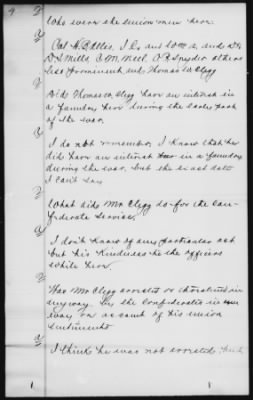 Who were the union men here.
Col H. Battles, J. L. and Wm
D. Mills J. M. Meel. O. P. Snyder others
less prominent and Thomas W. Clegg
Did Thomas W. Clegg have an interest in
a foundry here during the early part
of the war.
I do not remember, I know that he
did have an interest in a foundry
during the war, but the exact date
I can't say
What aid Mr Clegg do for the Con-
federate Service.
I don't know of any particular act
but his kindness to the officers
while here.
Was Mr Clegg arrested or threatened in
anyway by the Confederates in any
way on account of his union
sentiments
I think he was not arrested